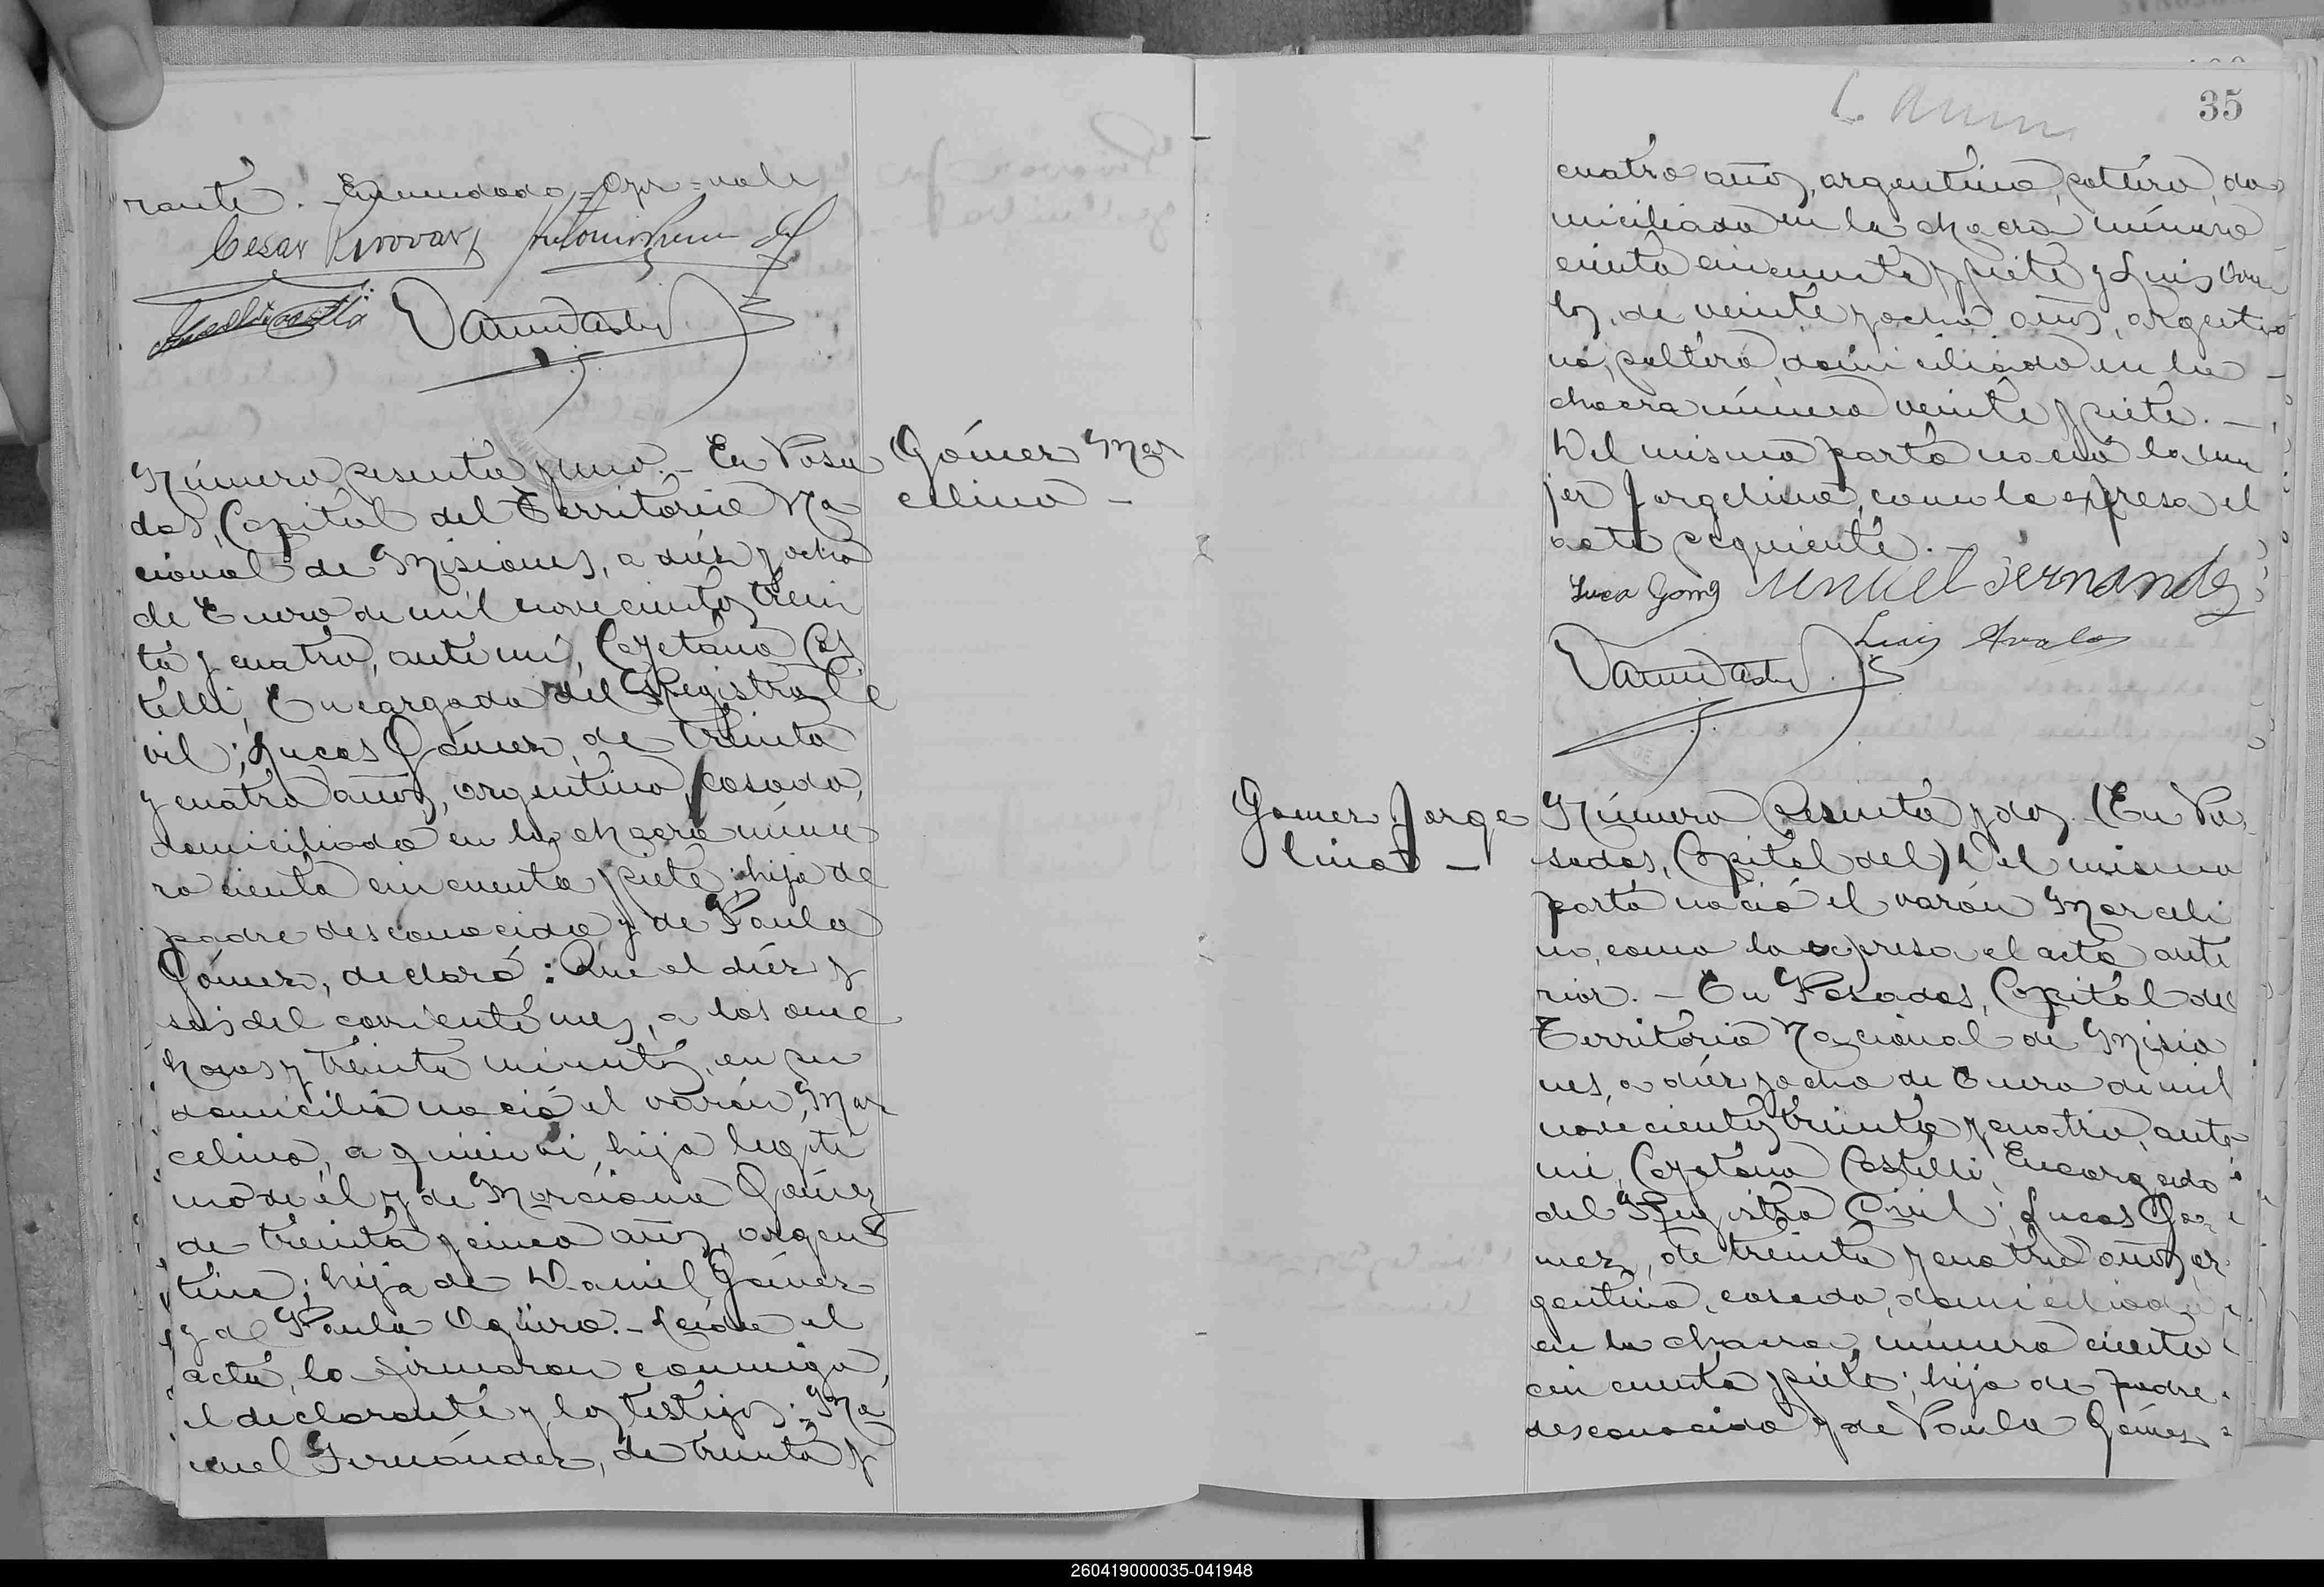 rante. - Enmendado = Oga = vale
Cesar
Número sesenta y uno. - En Posa
das, Capital del Territorio Na
cional de Misiones, a diéz y ocho
de Enero de mil novecientos trein
ta y cuatro, ante mí, Cayetano Cas
telli, Encargado del Registro Ci
vil; Lucas Gómez, de treinta
y cuatro años, argentino, casado,
domiciliado en la chacra núme
ro ciento cincuenta y siete; hijo de
padre desconocido y de Paula
Gómez, declaró: Que el diéz y
seis del corriente mes, a las once
horas y treinta minutos, en su
domicilio nació el varón, Mar
celino, a quien vi, hijo legíti
mo de él y de Marciana Gómez
de treinta y cinco años, argen
tina; hija de Daniel Gómez
y de Paula Agüero. - Leida el
acta, la firmaron conmigo,
el declarante y los testigos: Ma
nuel Fernández, de treinta y
Gómez Mar
celino -
35
cuatro años, argentino, soltero, do
miciliado en la chacra número
ciento cincuenta y siete y Luis Ava
los, de veinte y ocho años, argenti
no, soltero, domiciliado en la -
chacra número veinte y siete. -
Del mismo parto nació la mu
jer Jorgelina, como lo expresa el
acta siguiente. -
Luca Gomz Manuel Fernandez
Luis Avalos
Gomez Jorge
lina -
Número Sesenta y dos. - (En Po
sadas, Capital del) Del mismo
parto nació el varón Marceli
no, como lo expresa el acta ante
rior. - En Posadas, Capital del
Territorio Nacional de Misio
nes, a diéz y ocho de Enero de mil
novecientos treinta y cuatro, ante
mí, Cayetano Castelli, Encargado
del Registro Civil; Lucas Gó
mez, de treinta y cuatro años, ar
gentino, casado, domiciliado
en la chacra, número ciento
cincuenta y siete; hijo de padre
desconocido y de Paula Gómez
260419000035-041948